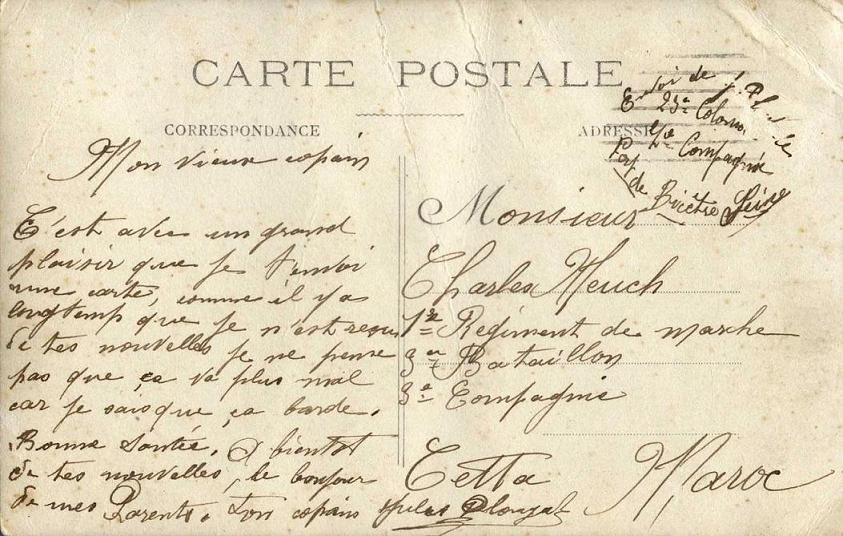 CARTE POSTALE
CORRESPONDANCE
ADRESSE
Envoi de J.
23e Colonial
Compagnie
de Bicêtre Seine
Mon vieux copain
C'est avec un grand
plaisir que je t'envoi
une carte, comme il y a
longtemp que je n'est resus
de tes nouvelles je ne pense
pas que ça va plus mal
car je sais que ça barde.
Bonne Santée. A bientot
de tes nouvelles, le bonjour
de mes Parents. Ton copain Jules
Monsieur
Charles Meuch
1er Regiment de marche
3em Bataillon
3e Compagnie
Maroc